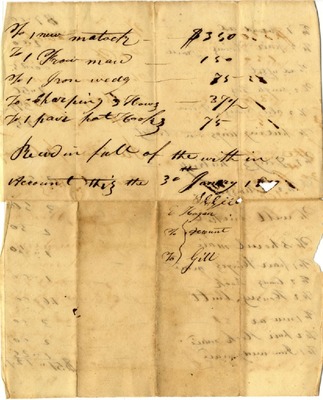 To 1 new matock — $3 50
To 1 Frow maid — 1 50
To 1 Iron wedg — 75
To Sharping 3 Hows — 37½
To 1 pare pot Hooks 75
Recd in full of the with in
Account this the 30th Janry
Hogan
To Account
To Gill